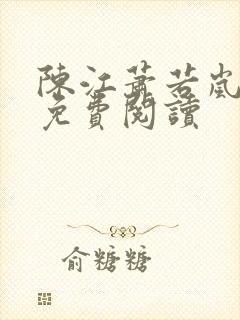 陳江蕭若嵐
免費閱讀
俞糖糖